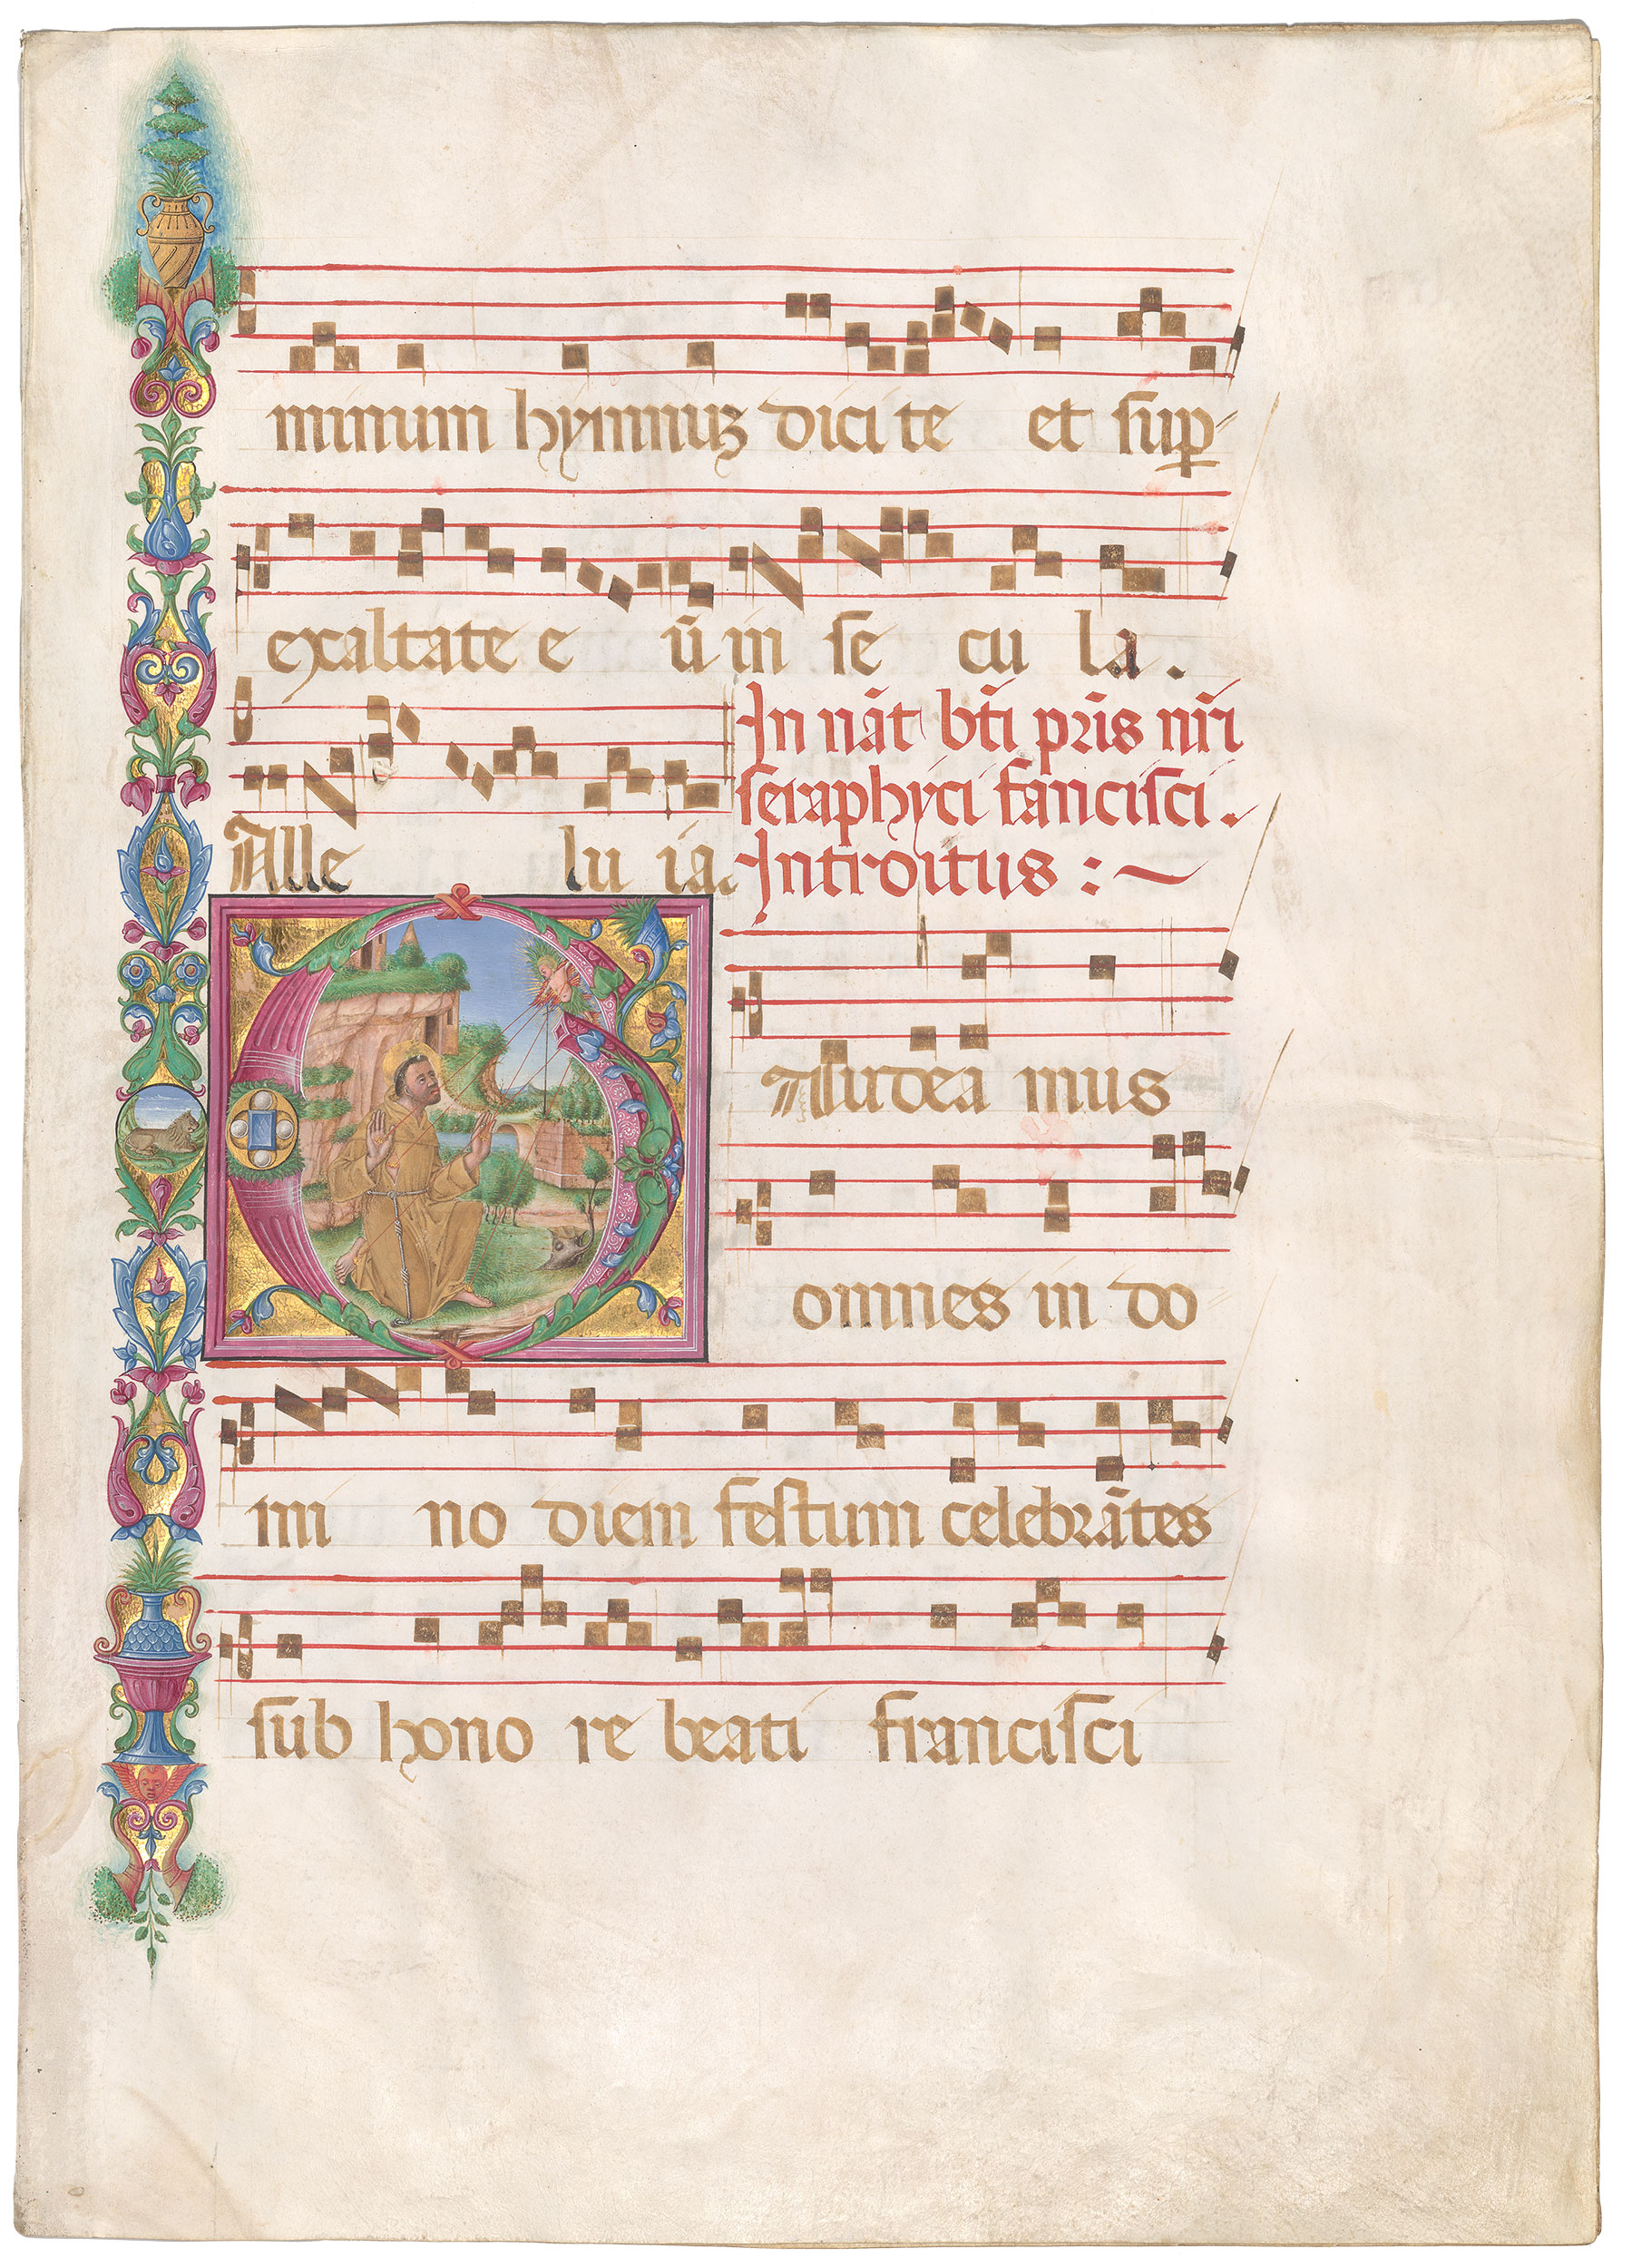 minum hymnuꝫ dicite et suꝑ
exaltate eũ in secula.
Alleluia.
In nãt bt̃i pr̃is nr̃i
seraphyci francisci.
Introitus :~
Audeamus
omnes in do
mino diem festum celebrãtes
sub honore beati francisci